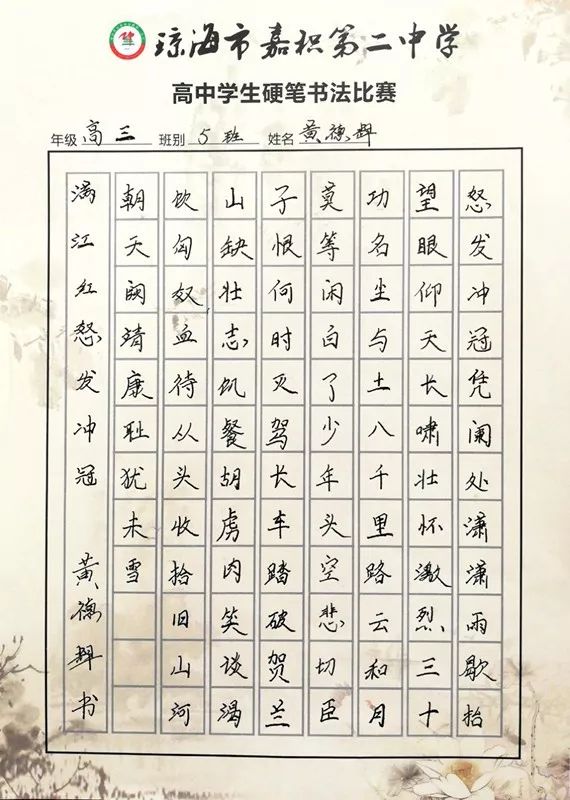 琼海市嘉积第二中学
高中学生硬笔书法比赛
年级 高三 班别 5班 姓名 黄德
怒发冲冠凭阑处潇潇雨歇抬
望眼仰天长啸壮怀激烈三十
功名尘与土八千里路云和月
莫等闲白了少年头空悲切臣
子恨何时灭驾长车踏破贺兰
山缺壮志饥餐胡虏肉笑谈渴
饮匈奴血待从头收拾旧山河
朝天阙靖康耻犹未雪
满江红怒发冲冠 黄德书